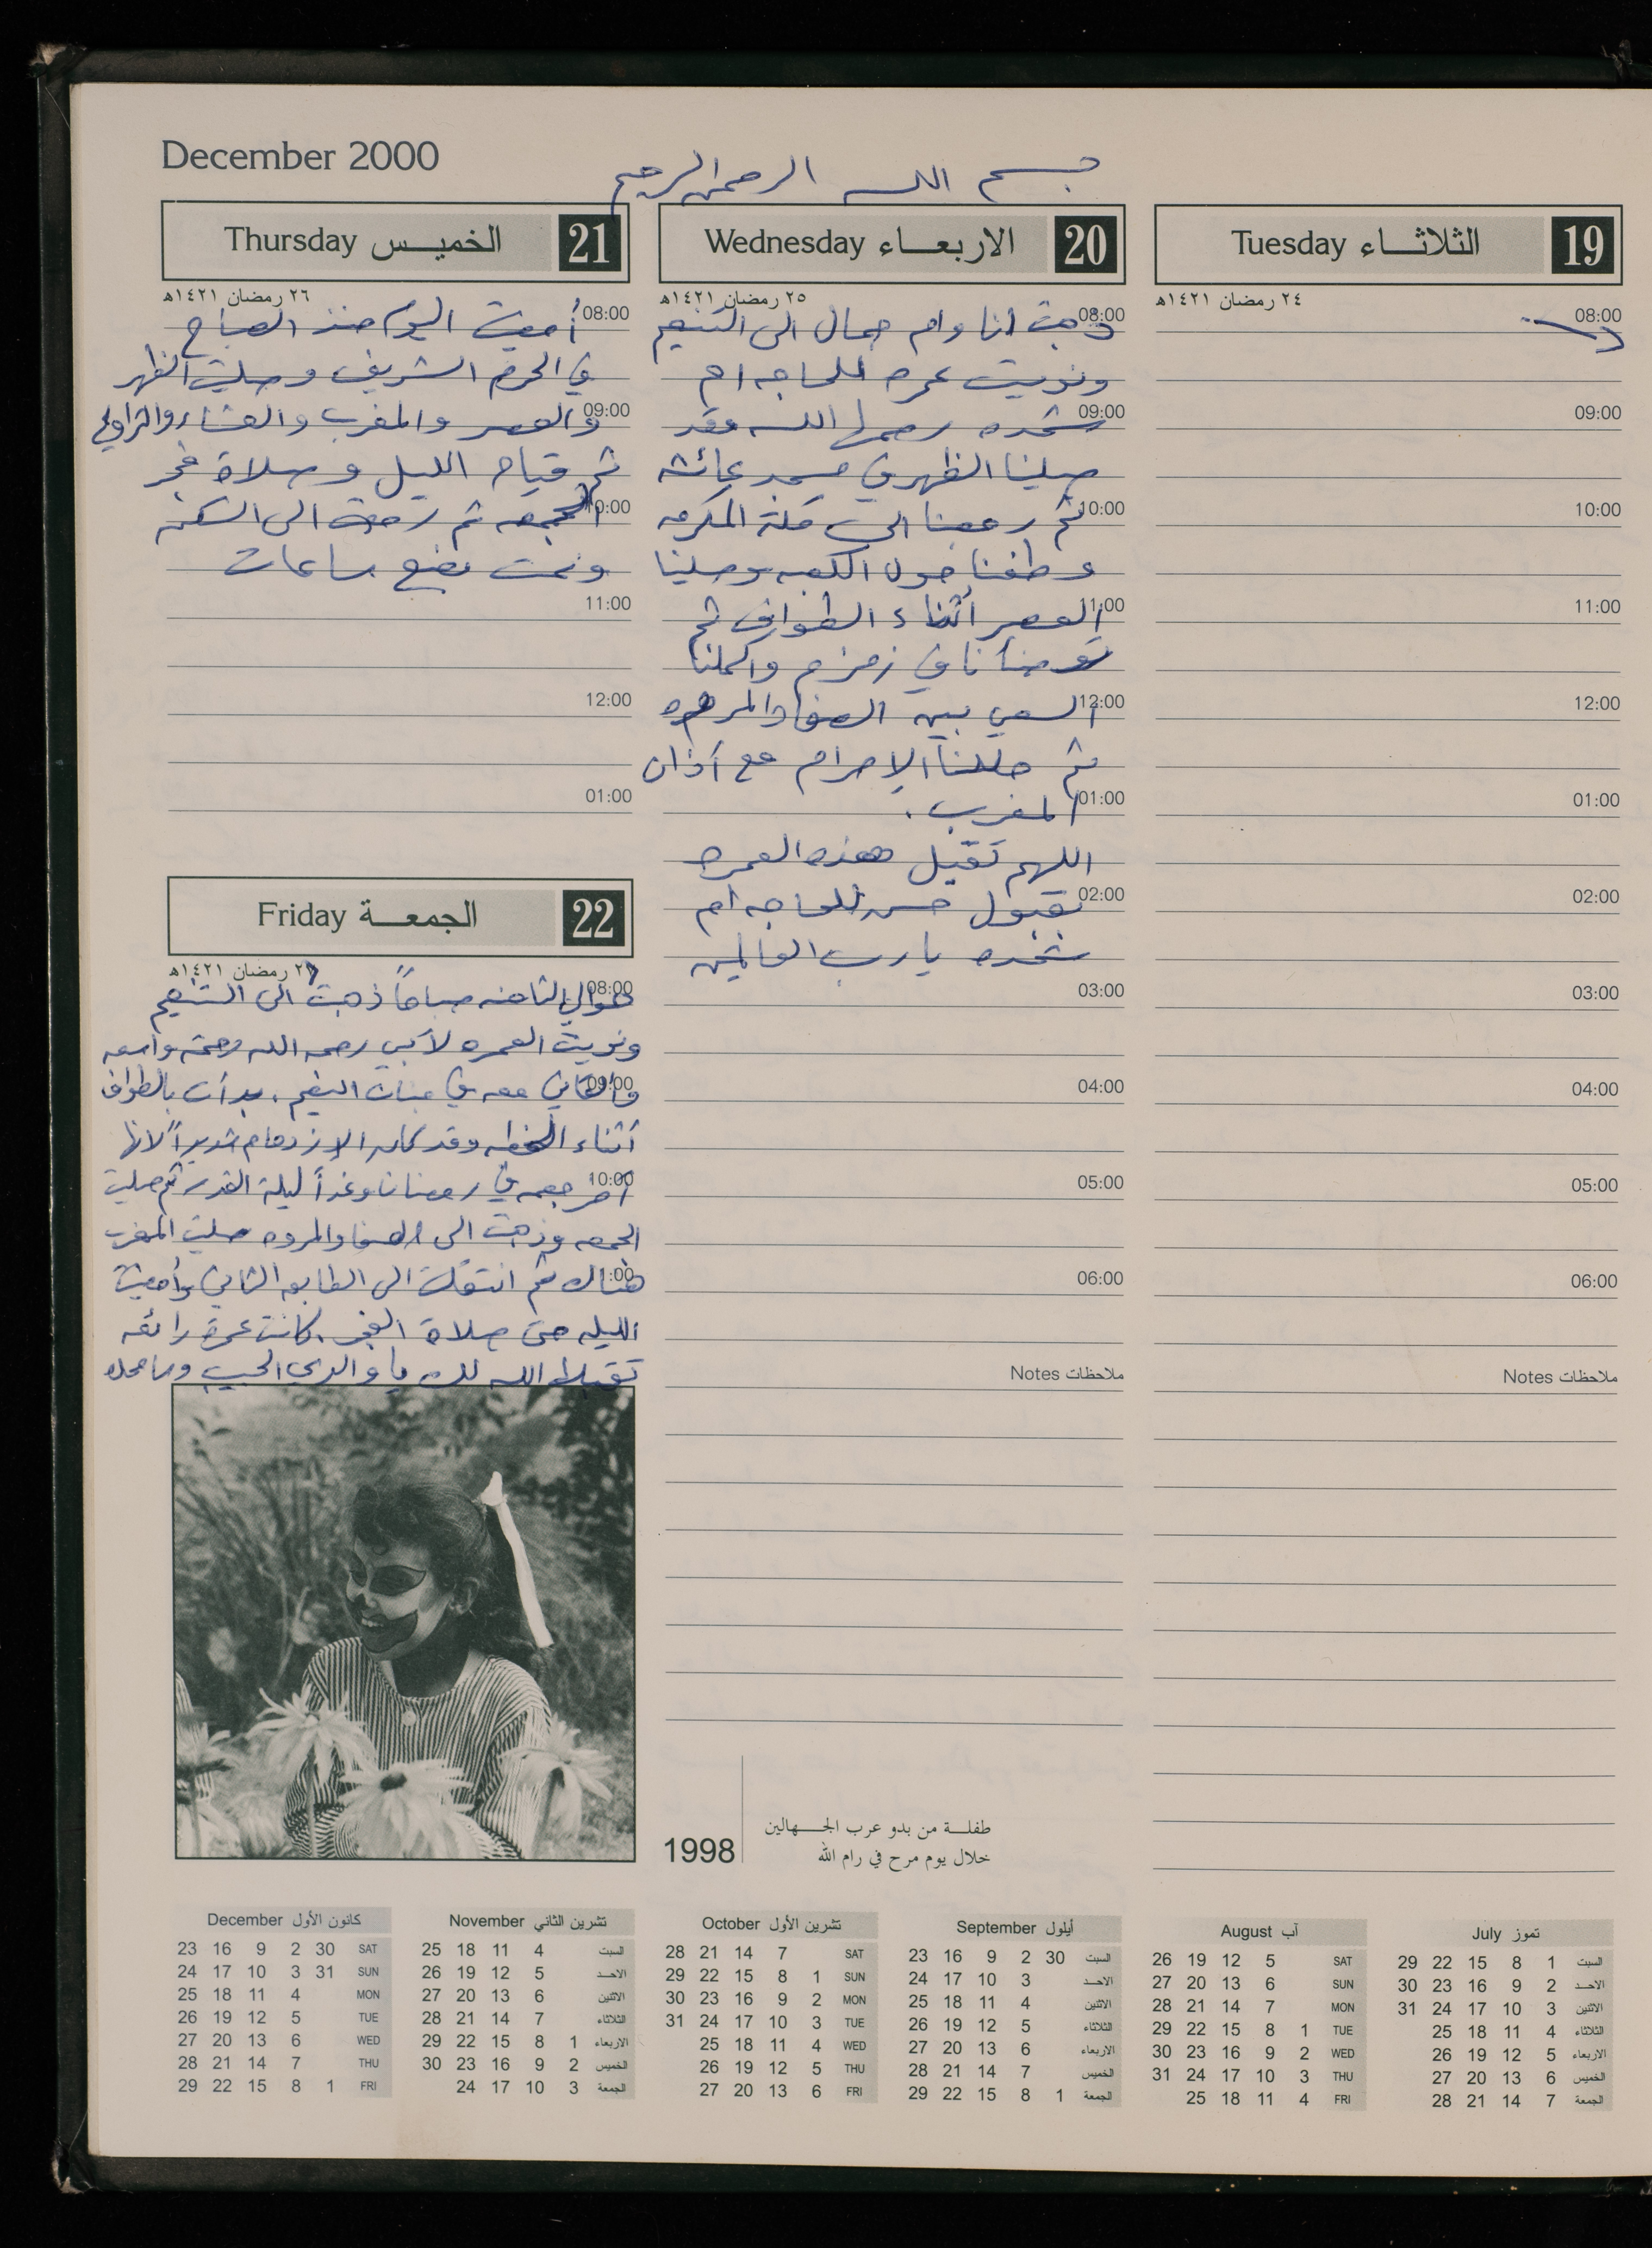 December 2000
بسم الله الرحمن الرحيم
19 الثلاثاء Tuesday
٢٤ رمضان ١٤٢١هـ
08:00
09:00
10:00
11:00
12:00
01:00
02:00
03:00
04:00
05:00
06:00
ملاحظات Notes
20 الاربعاء Wednesday
٢٥ رمضان ١٤٢١هـ
08:00 ذهبت انا وام جمال الى التنعيم
ونويت عمره للحاجه ام
09:00 شحده رحمها الله وقد
صلينا الظهر في مسجد عائشه
10:00 ثم رجعنا الى مكة المكرمه
وطفنا حول الكعبه وصلينا
11:00 العصر أثناء الطواف ثم
توضأنا في زمزم واكملنا
12:00 السعي بين الصفا والمروه
ثم حللنا الإحرام مع أذان
01:00 المغرب .
اللهم تقبل هذه العمره
02:00 بقبول حسن للحاجه ام
شحده يا رب العالمين
03:00
04:00
05:00
06:00
ملاحظات Notes
21 الخميس Thursday
٢٦ رمضان ١٤٢١هـ
08:00 أمضيت اليوم منذ الصباح
في الحرم الشريف وصليت الظهر
09:00 والعصر والمغرب والعشاء والتراويح
ثم قيام الليل وصلاة فجر
10:00 الجمعه ثم رجعت الى السكن
ونمت بضع ساعات
11:00
12:00
01:00
22 الجمعة Friday
٢٧ رمضان ١٤٢١هـ
08:00 حوالي الثامنه صباحاً ذهبت الى التنعيم
ونويت العمره لأبي رحمه الله رحمة واسعه
09:00 معه في جنات النعيم . بدأت بالطواف
أثناء الخطبه وقد كان الإزدحام شديداً لانها
10:00 آخر جمعه في رمضان وغداً ليلة القدر ثم صليت
الجمعه وذهبت الى الصفا والمروه صليت المغرب
:00 هناك ثم انتقلت الى الطابق الثاني وأمضيت
الليله حتى صلاة الفجر . كانت عمرة رائعه
تقبلها الله لك يا والدي الحبيب
1998
طفلة من بدو عرب الجهالين
خلال يوم مرح في رام الله
تموز July
السبت 1 8 15 22 29
الاحد 2 9 16 23 30
الاثنين 3 10 17 24 31
الثلاثاء 4 11 18 25
الاربعاء 5 12 19 26
الخميس 6 13 20 27
الجمعة 7 14 21 28
آب August
SAT 5 12 19 26
SUN 6 13 20 27
MON 7 14 21 28
TUE 1 8 15 22 29
WED 2 9 16 23 30
THU 3 10 17 24 31
FRI 4 11 18 25
أيلول September
السبت 30 2 9 16 23
الاحد 3 10 17 24
الاثنين 4 11 18 25
الثلاثاء 5 12 19 26
الاربعاء 6 13 20 27
الخميس 7 14 21 28
الجمعة 1 8 15 22 29
تشرين الأول October
SAT 7 14 21 28
SUN 1 8 15 22 29
MON 2 9 16 23 30
TUE 3 10 17 24 31
WED 4 11 18 25
THU 5 12 19 26
FRI 6 13 20 27
تشرين الثاني November
السبت 4 11 18 25
الاحد 5 12 19 26
الاثنين 6 13 20 27
الثلاثاء 7 14 21 28
الاربعاء 1 8 15 22 29
الخميس 2 9 16 23 30
الجمعة 3 10 17 24
كانون الأول December
SAT 30 2 9 16 23
SUN 31 3 10 17 24
MON 4 11 18 25
TUE 5 12 19 26
WED 6 13 20 27
THU 7 14 21 28
FRI 1 8 15 22 29